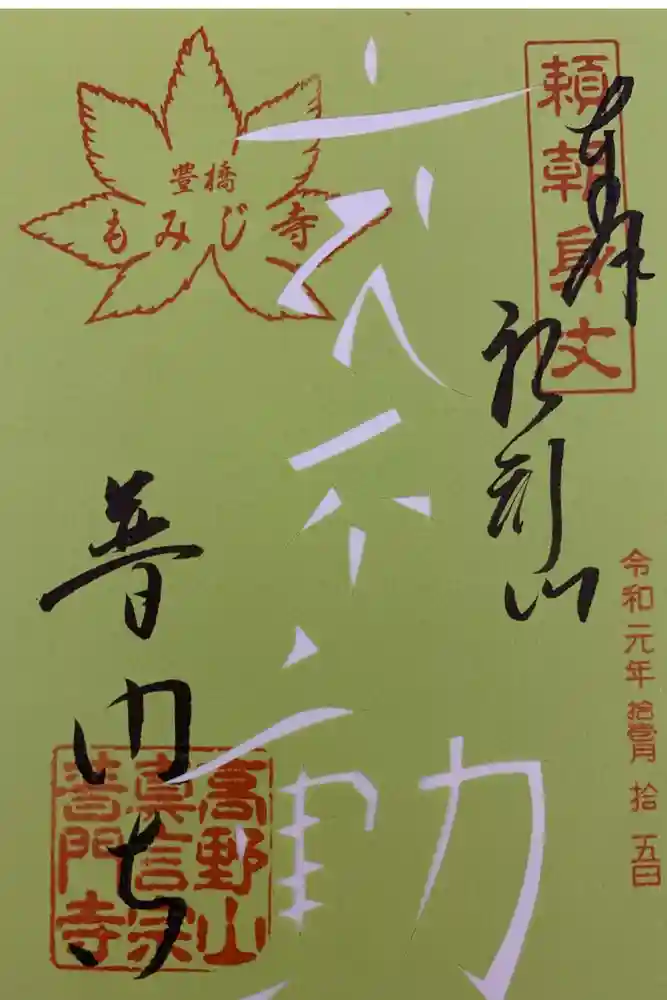 奉拝
頼朝身丈
船形山
令和元年拾壹月拾五日
不動
豊橋
もみじ寺
普門寺
高野山
真言宗
普門寺